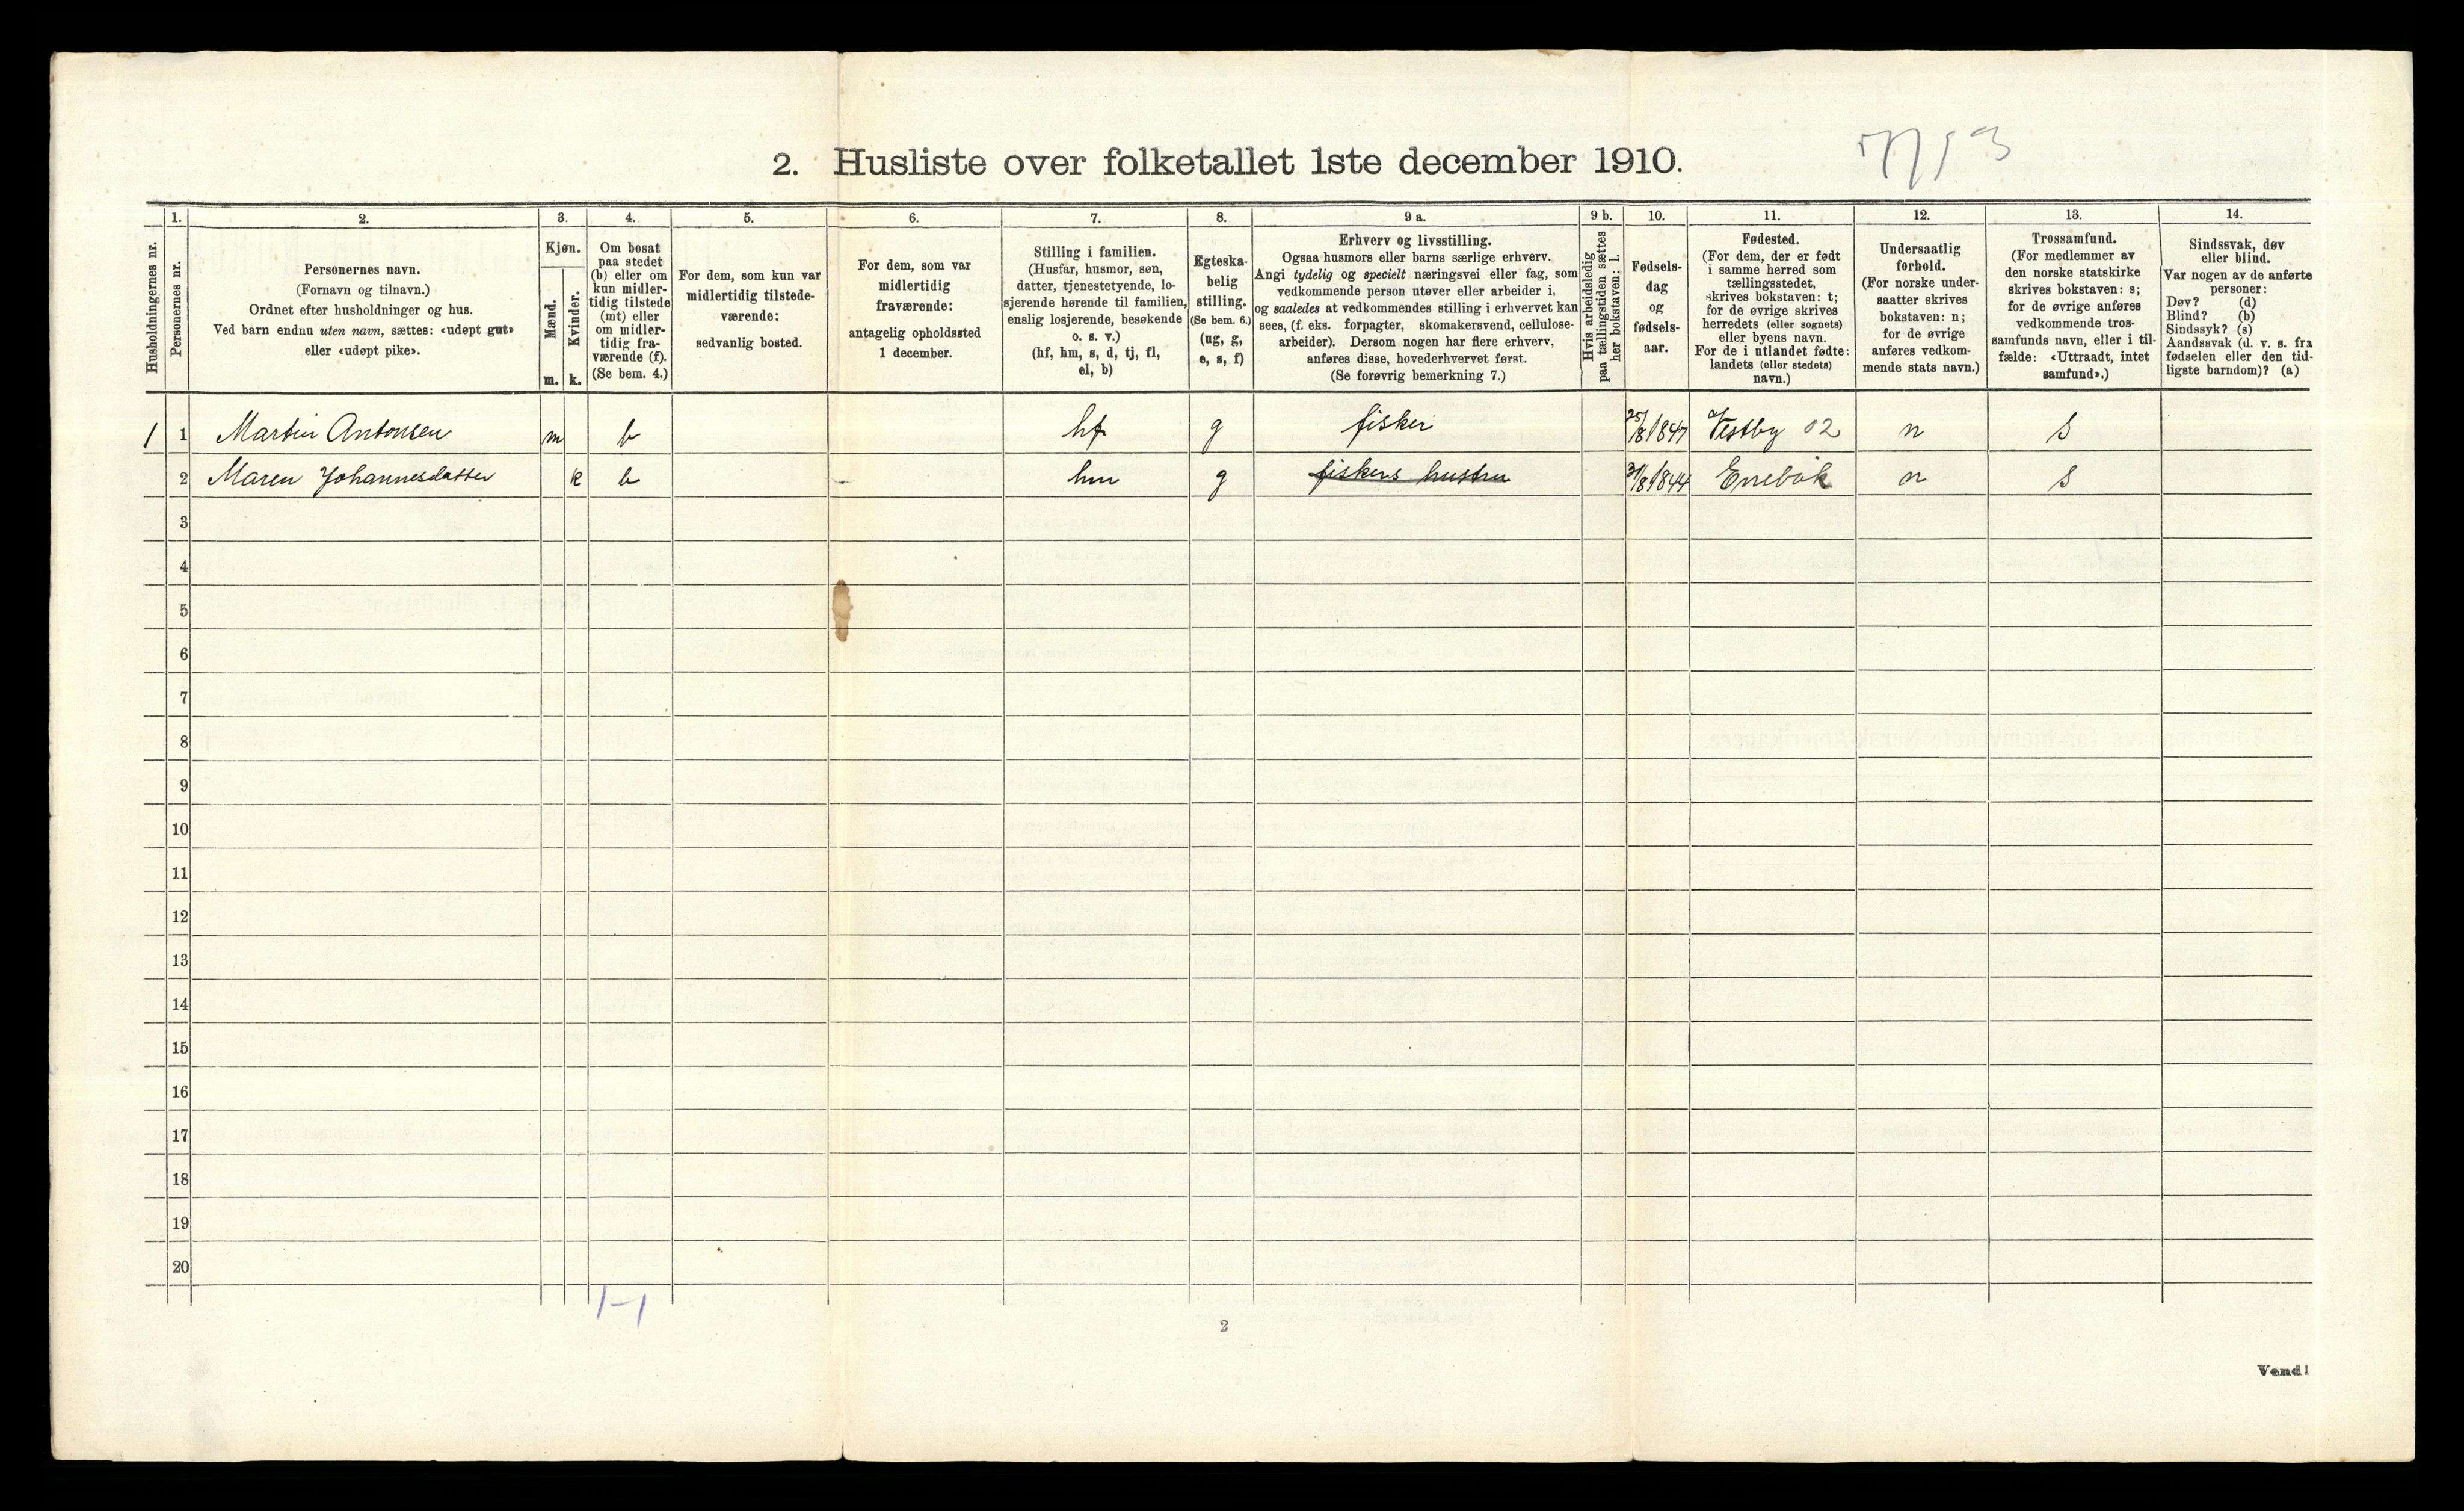 2. Husliste over folketallet 1ste december 1910.
Husholdningernes nr.
1.
Personernes nr.
2.
Personernes navn.
(Fornavn og tilnavn.)
Ordnet efter husholdninger og hus.
Ved barn endnu uten navn, sættes: «udøpt gut»
eller «udøpt pike».
3.
Kjøn.
Mænd.
Kvinder.
m. k.
4.
Om bosat
paa stedet
(b) eller om
kun midler-
tidig tilstede
(mt) eller
om midler-
tidig fra-
værende (f).
(Se bem. 4.)
5.
For dem, som kun var
midlertidig tilstede-
værende:
sedvanlig bosted.
6.
For dem, som var
midlertidig
fraværende:
antagelig opholdssted
1 december.
7.
Stilling i familien.
(Husfar, husmor, søn,
datter, tjenestetyende, lo-
sjerende hørende til familien,
enslig losjerende, besøkende
o. s. v.)
(hf, hm, s, d, tj, fl,
el, b)
8.
Egteska-
belig
stilling.
(Se bem. 6.)
(ug, g,
e, s, f)
9 a.
Erhverv og livsstilling.
Ogsaa husmors eller barns særlige erhverv.
Angi tydelig og specielt næringsvei eller fag, som
vedkommende person utøver eller arbeider i,
og saaledes at vedkommendes stilling i erhvervet kan
sees, (f. eks. forpagter, skomakersvend, cellulose-
arbeider). Dersom nogen har flere erhverv,
anføres disse, hovederhvervet først.
(Se forøvrig bemerkning 7.)
9 b.
Hvis arbeidsledig
paa tællingstiden sættes
her bokstaven: l.
10.
Fødsels-
dag
og
fødsels-
aar.
11.
Fødested.
(For dem, der er født
i samme herred som
tællingsstedet,
skrives bokstaven: t;
for de øvrige skrives
herredets (eller sognets)
eller byens navn.
For de i utlandet fødte:
landets (eller stedets)
navn.)
12.
Undersaatlig
forhold.
(For norske under-
saatter skrives
bokstaven: n;
for de øvrige
anføres vedkom-
mende stats navn.)
13.
Trossamfund.
(For medlemmer av
den norske statskirke
skrives bokstaven: s;
for de øvrige anføres
vedkommende tros-
samfunds navn, eller i til-
fælde: «Uttraadt, intet
samfund».)
14.
Sindssvak, døv
eller blind.
Var nogen av de anførte
personer:
Døv? (d)
Blind? (b)
Sindssyk? (s)
Aandssvak (d. v. s. fra
fødselen eller den tid-
ligste barndom)? (a)
1 1 Martin Antonsen m b hf g fisker 25/8 1847 Vestby 02 n s
2 Maren Johannesdatter k b hm g fiskers hustru 31/8 1844 Enebak n s
3
4
5
6
7
8
9
10
11
12
13
14
15
16
17
18
19
20
1-1
2
Vend!